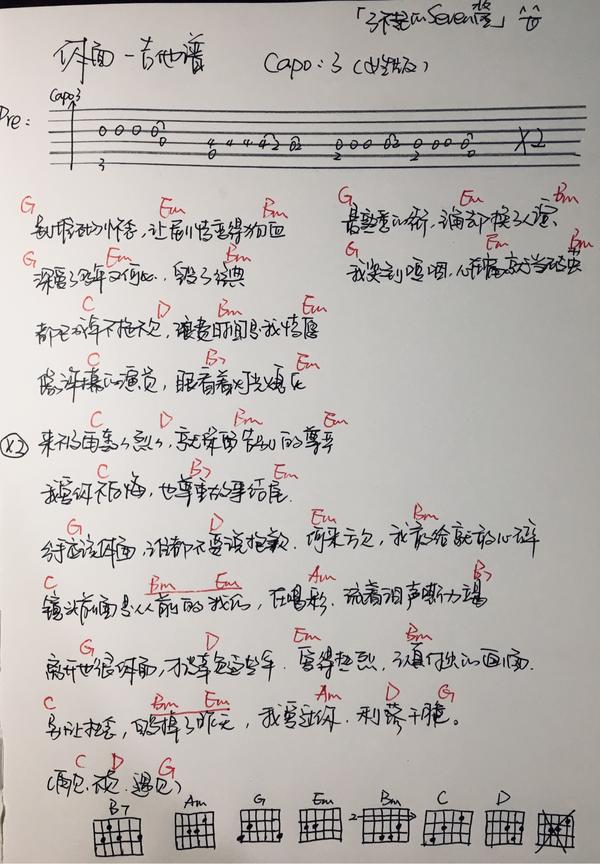 Seven
体面-吉他谱 Capo:3(女生版)
Capo3
Pre:
0 0 0 0 2 0 4 4 4 4 2 0 2 0 0 0 0 2 0 0 0 0 2 0 X2
3 0 2 2
G Em Bm G Em Bm
别堆砌怀念,让剧情变得狗血 最熟悉的街,主角却换了人演
G Em Bm G Em Bm
深爱了多年又何必,毁了经典 我哭到哽咽,心再痛就当破茧
C D Bm Em
都已成年不拖不欠,浪费时间是我情愿
C B7 Em
像谢幕的演员,眼看着灯光熄灭
C D Bm Em
X2 来不及再轰轰烈烈,就保留告别的尊严
C B7 Em
我爱你不后悔,也尊重故事结尾.
G D Em Bm
分手应该体面,谁都不要说抱歉.何来亏欠,我敢给就敢心碎
C Bm Em Am B7
镜头前面是从前的我们,在喝彩,流着泪声嘶力竭
G D Em Bm
离开也很体面,才没辜负这些年.爱得热烈,认真付出的画面.
C Bm Em Am D G
别让执念,毁掉了昨天,我爱过你.利落干脆。
C D G
(再见.不负.遇见)
B7 Am G Em Bm C D
2